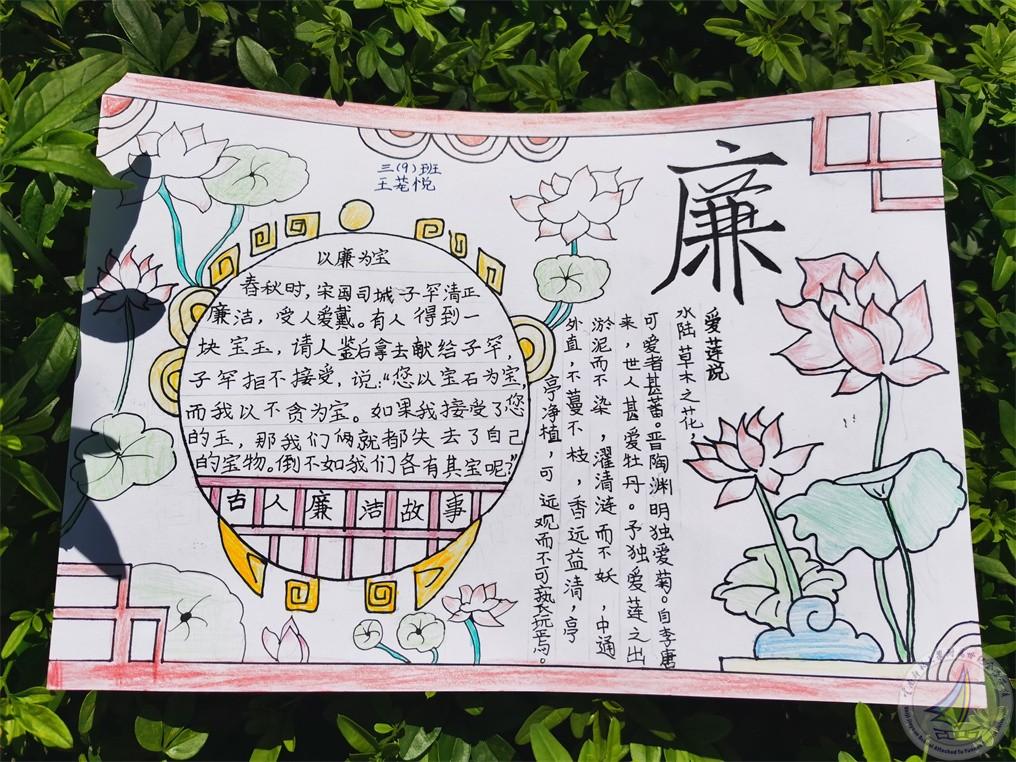 三(9)班
廉
以廉为宝
春秋时，宋国司城子罕清正
廉洁，受人爱戴。有人得到一
块宝玉，请人鉴后拿去献给子罕，
子罕拒不接受，说：“您以宝石为宝，
而我以不贪为宝。如果我接受了您
的玉，那我们俩就都失去了自己
的宝物。倒不如我们各有其宝呢？”
古人廉洁故事
爱莲说
水陆草木之花，
可爱者甚蕃。晋陶渊明独爱菊。自李唐
来，世人甚爱牡丹。予独爱莲之出
淤泥而不染，濯清涟而不妖，中通
外直，不蔓不枝，香远益清，亭
亭净植，可远观而不可亵玩焉。